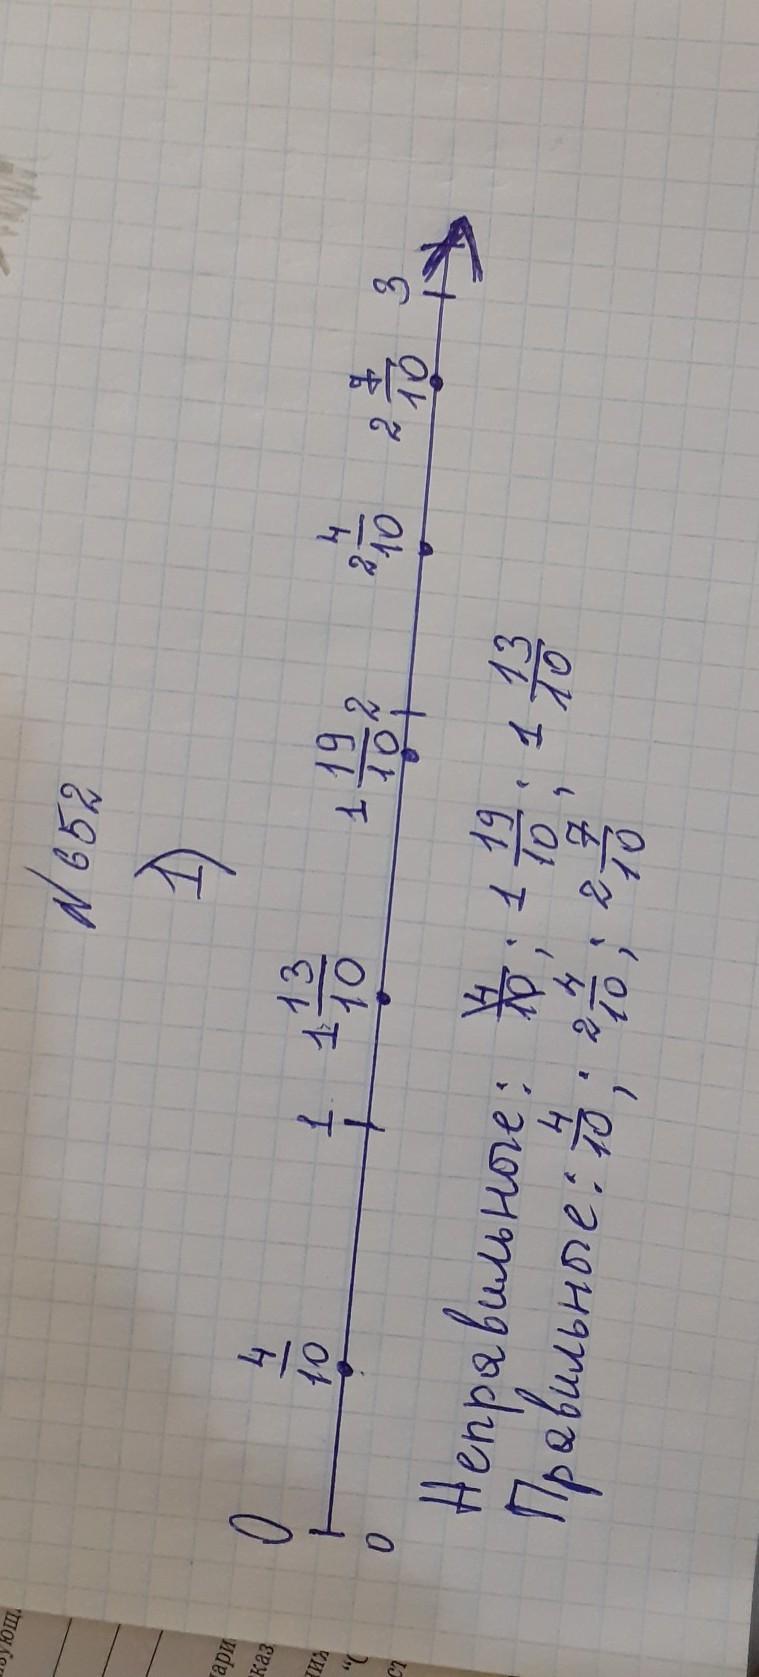 N 652
1)
0 4/10 1 1 13/10 1 19/10 2 2 4/10 2 7/10 3
0
Неправильные: 4/10; 1 19/10; 1 13/10
Правильные: 4/10; 2 4/10; 2 7/10